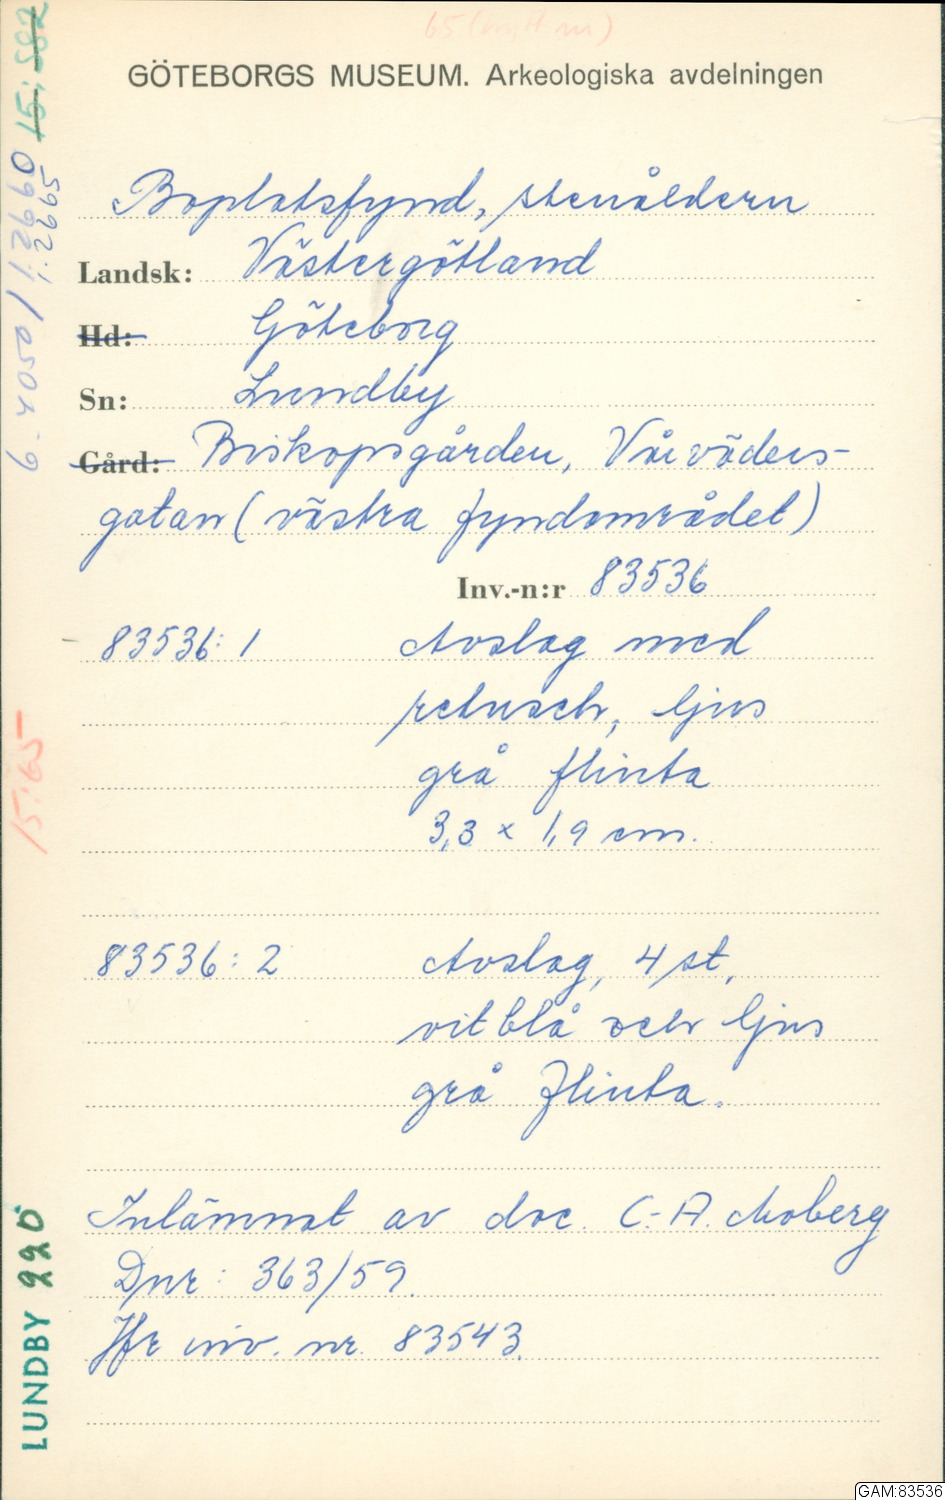 65 (nytt nr)
GÖTEBORGS MUSEUM. Arkeologiska avdelningen
Boplatsfynd, stenåldern
Landsk: Västergötland
Hd: Göteborg
Sn: Lundby
Gård: Biskopsgården, Vårväders-
gatan (västra fyndområdet)
Inv.-n:r 83536
83536:1 Avslag med
retusch, ljus
grå flinta
3,3 x 1,9 cm.
83536:2 Avslag, 4 st,
vitblå och ljus
grå flinta.
Inlämnat av doc. C-A. Moberg
Dnr: 363/59.
Jfr inv. nr. 83543.
15:582
1:2660
1:2665
15:65
LUNDBY 220
GAM:83536